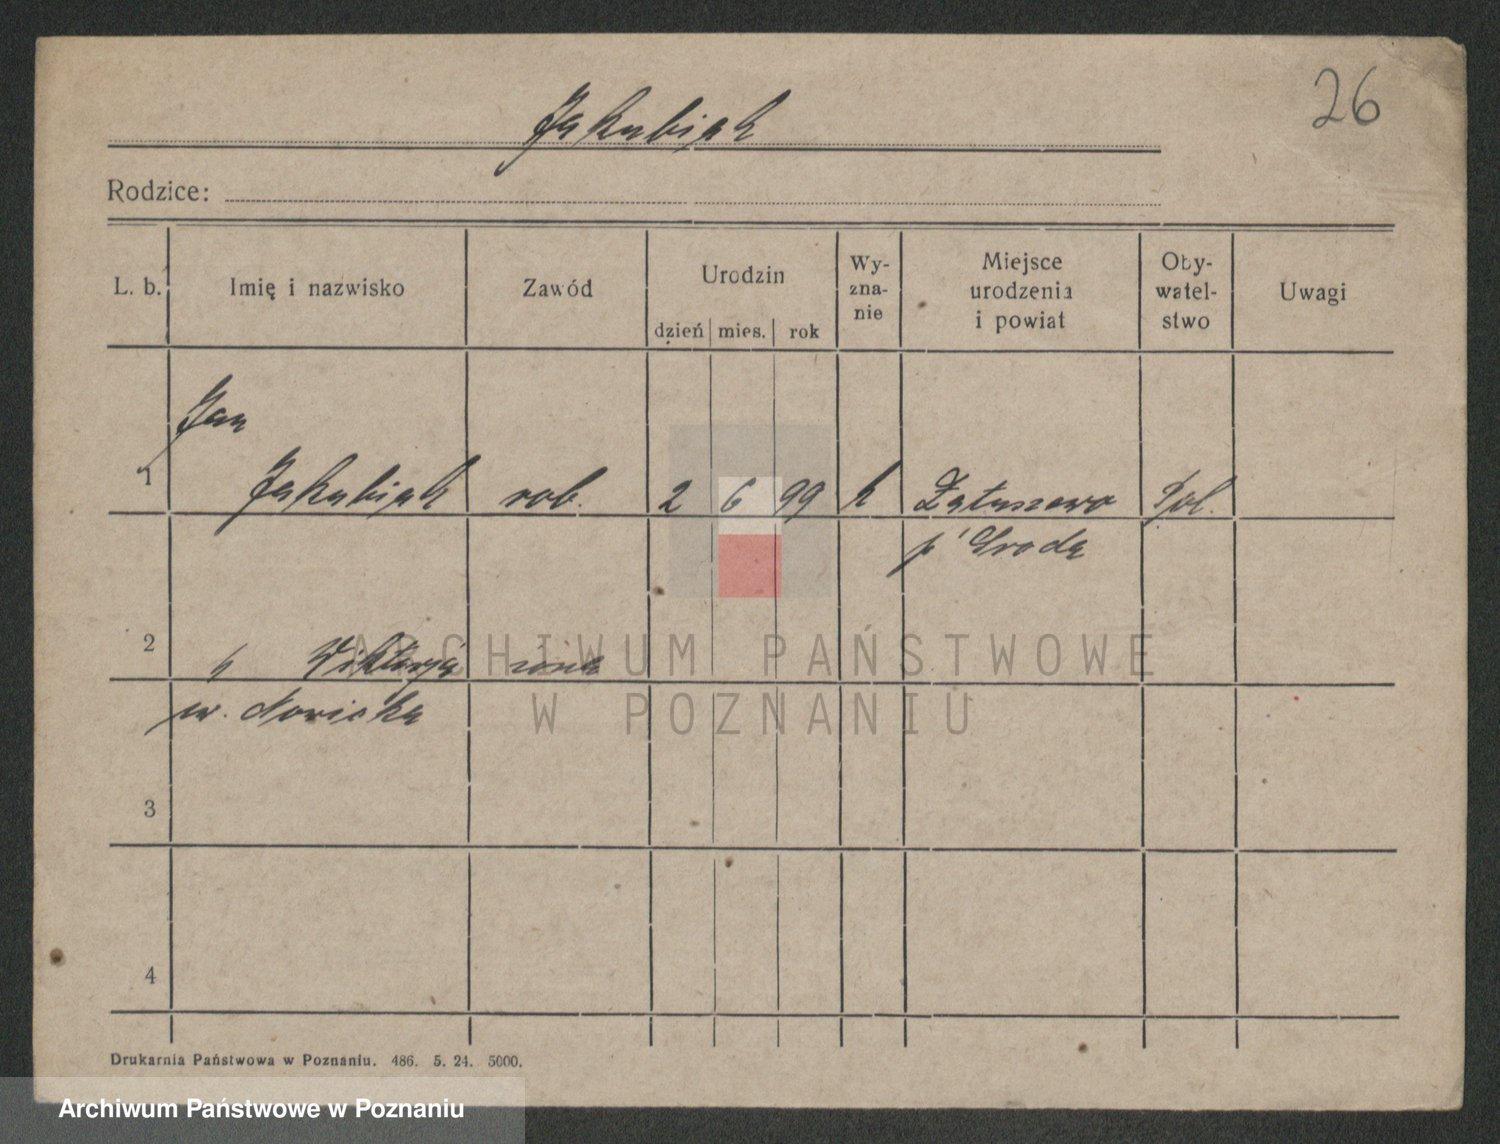 26
Jakubiak
Rodzice:
L. b. Imię i nazwisko Zawód Urodzin dzień mies. rok Wy-zna-nie Miejsce urodzenia i powiat Oby-watel-stwo Uwagi
Jan
1 Jakubiak rob. 2 6 99 k Pol.
p
2 " Wiktorja żona
ur. Nowicka
3
4
Drukarnia Państwowa w Poznaniu. 486. 5. 24. 5000.
ARCHIWUM PAŃSTWOWE
W POZNANIU
Archiwum Państwowe w Poznaniu